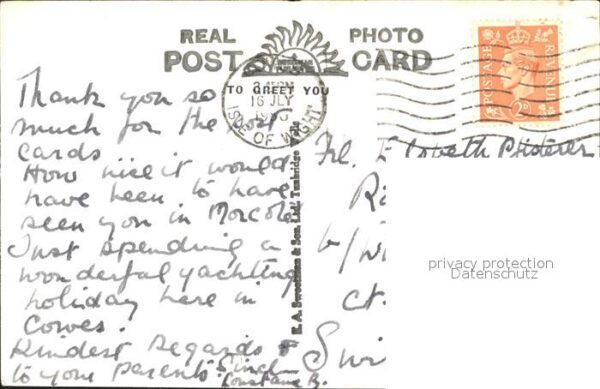 REAL PHOTO
POST CARD
TO GREET YOU
16 JLY
ISLE OF WIGHT
POSTAGE REVENUE
2D
Thank you so
much for the
cards
How nice it would
have been to have
seen you in
Just spending a
wonderful yachting
holiday here in
Cowes.
Kindest Regards &
to your parents
Constance B.
E. A. Sweetman & Son, Ltd., Tunbridge Wells
Frl.
Pfisterer
Ri
b/Wi
Ct.
Swi
privacy protection
Datenschutz